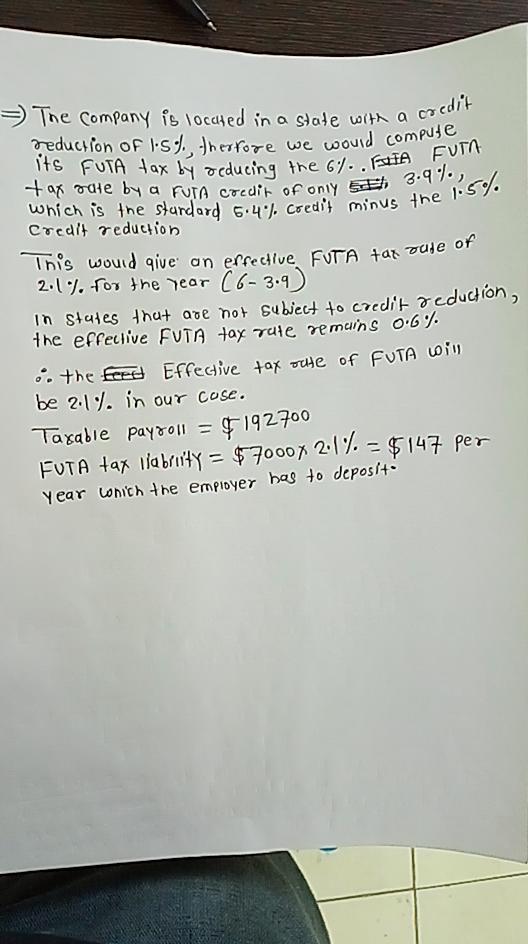 ⇒) The Company is located in a state with a credit
reduction of 1.5%, therfore we would compute
its FUTA tax by reducing the 6%. FUTA
tax rate by a FUTA credit of only 3.9%,
which is the standard 5.4% credit minus the 1.5%
Credit reduction
This would give an effective FUTA tax rate of
2.1% for the year (6-3.9)
In states that are not subject to credit reduction,
the effective FUTA tax rate remains 0.6%
∴ the Effective tax rate of FUTA will
be 2.1% in our case.
Taxable payroll = $192700
FUTA tax liability = $7000x 2.1% = $147 per
year which the employer has to deposit.